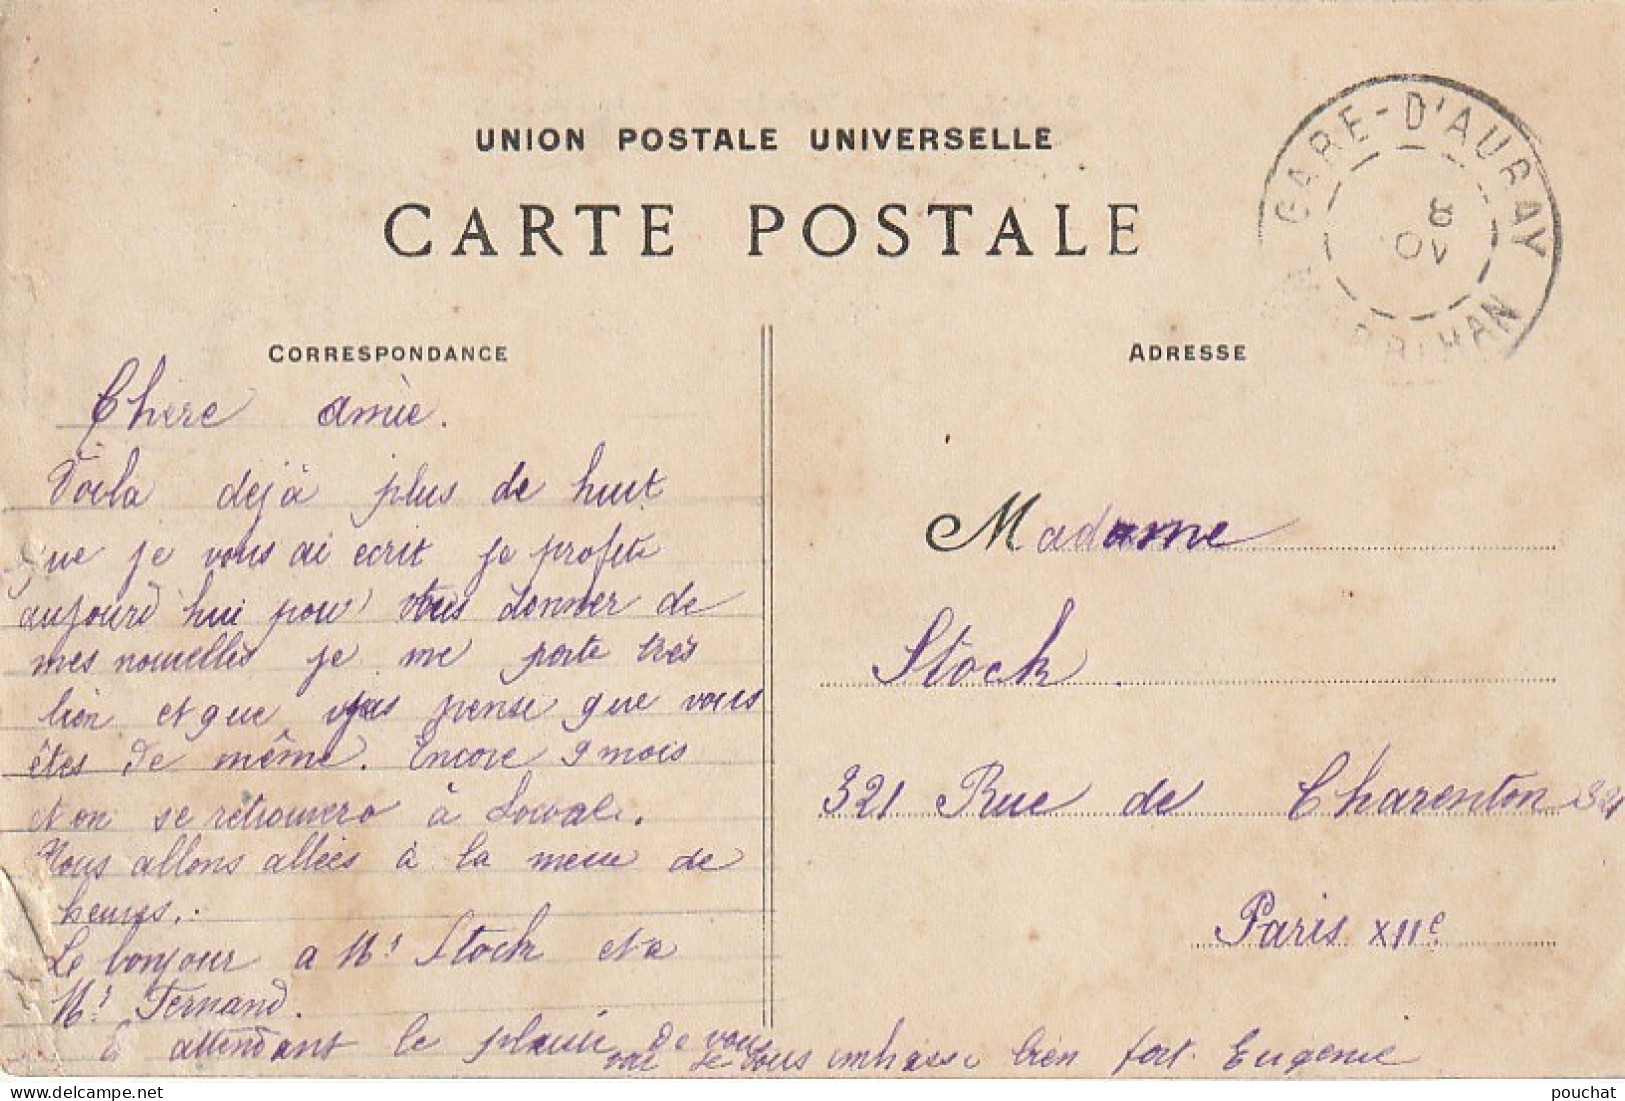 UNION POSTALE UNIVERSELLE
CARTE POSTALE
GARE-D'AURAY
8
10
MORBIHAN
CORRESPONDANCE
ADRESSE
Chère amie.
Voila deja plus de huit
que je vous ai ecrit je profite
aujourd'hui pour vous donner de
mes nouvelles je me porte très
bien et que je pense que vous
êtes de même. Encore 9 mois
et on se retrouvera à
Nous allons allées à la messe de
heures.
Le bonjour a Mr Stock et a
Mr Fernand.
attendant le plaisir de vous
voir je vous embrasse bien fort Eugenie
Madame
Stock
321 Rue de Charenton 321
Paris XIIe
pouchat